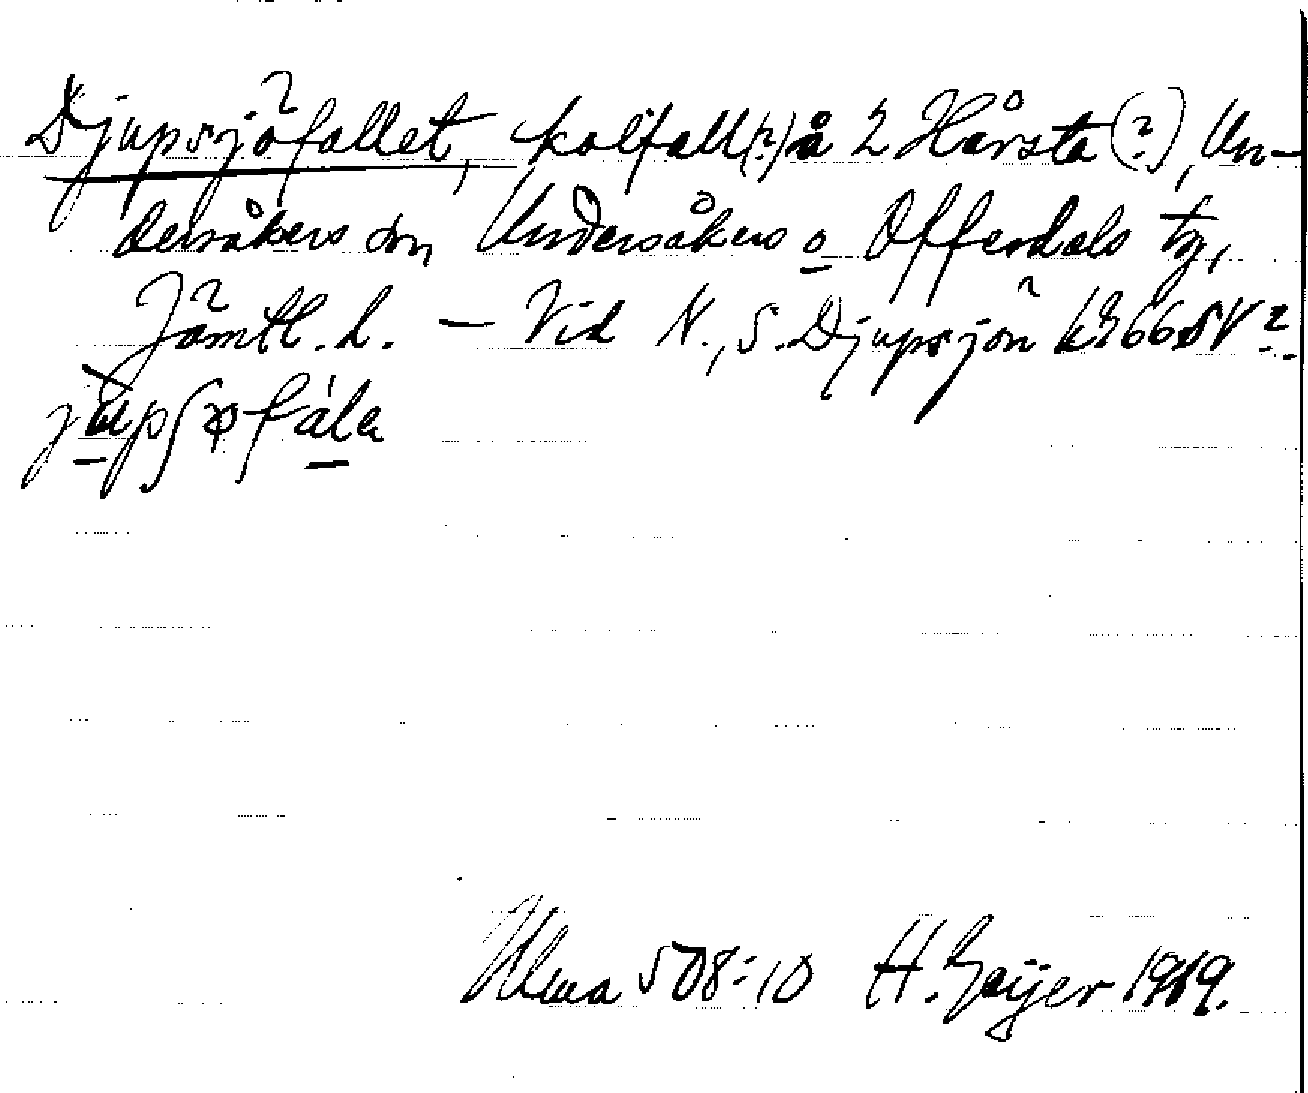 Djupsjöfallet, kolfall(?) å 2 Hårsta (?), Un-
dersåkers sn, Undersåkers o Offerdals tg,
Jämtl. l. — Vid N., S. Djupsjön 66 SV ?
Ulma 508:10 H. Geijer 1919.